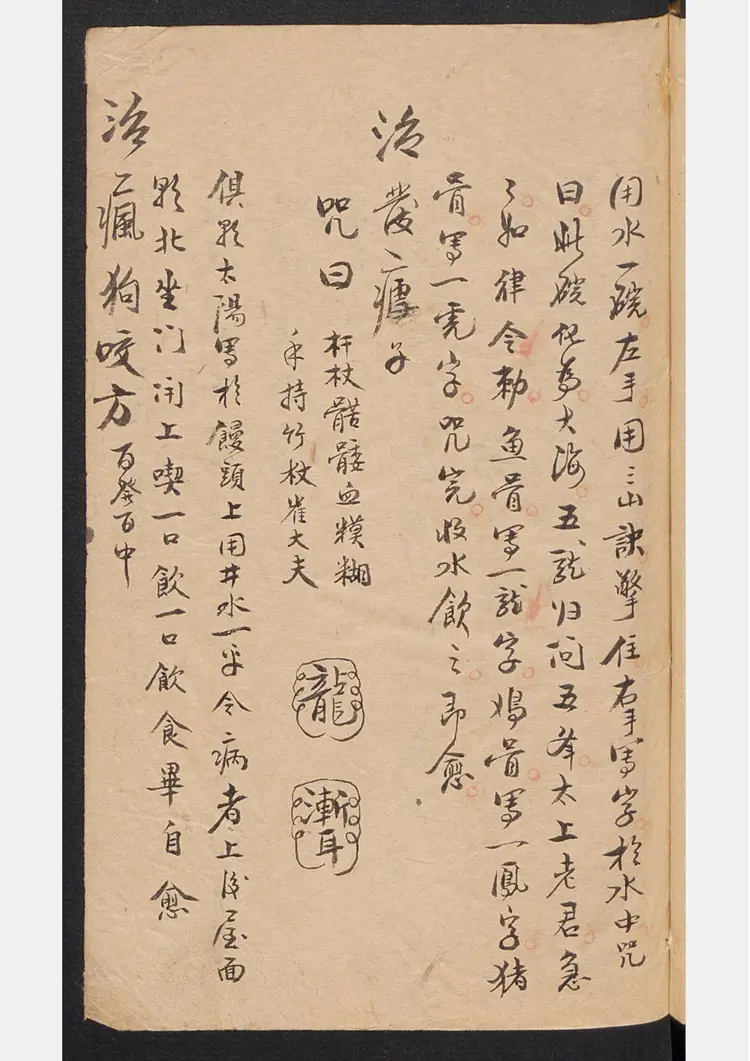 用水一碗左手用三山訣擎住右手寫字於水中咒
曰此碗化為大海五龍归向五峯太上老君急
〻如律令勅魚骨寫一龍字鳩骨寫一鳳字猪
骨寫一虎字咒完收水飲之即愈
治發瘧子
咒曰
杆杖骷髏血糢糊
手持竹杖崔大夫
龍
漸耳
俱影太陽寫於饅頭上用井水一平令病者上後屋面
影北坐门闭上喫一口飲一口飲食畢自愈
治瘋狗咬方百發百中